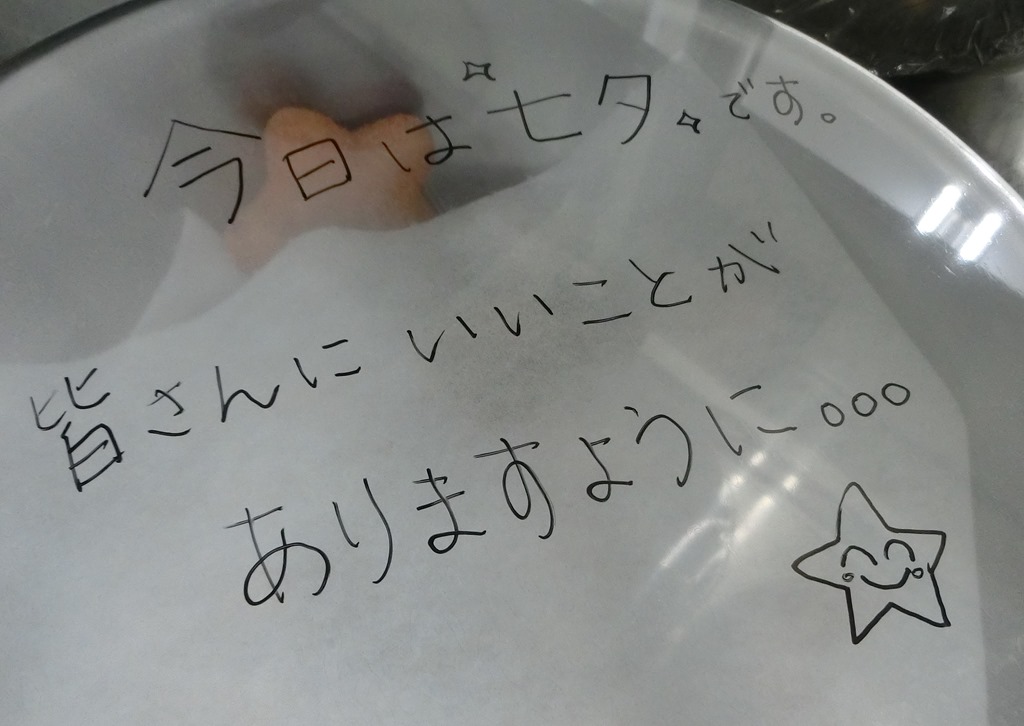 今日は七夕です。
皆さんにいいことが
ありますように...